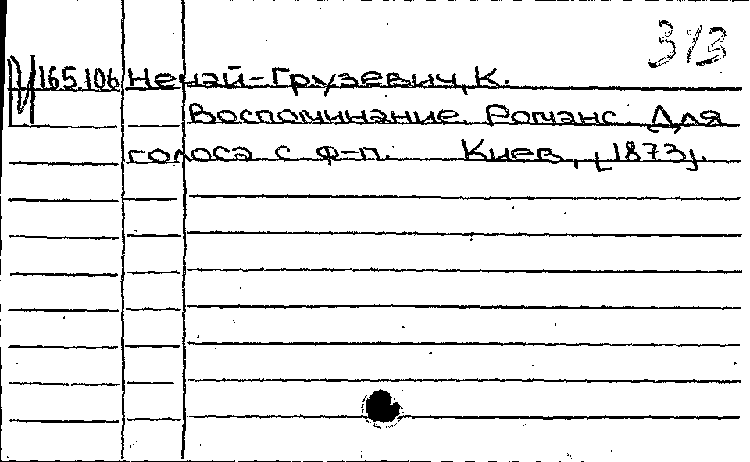 313
165.106 Ненай-Грузевич, К.
Воспоминание. Романс. Для
голоса с ф-п. Киев, [1873].